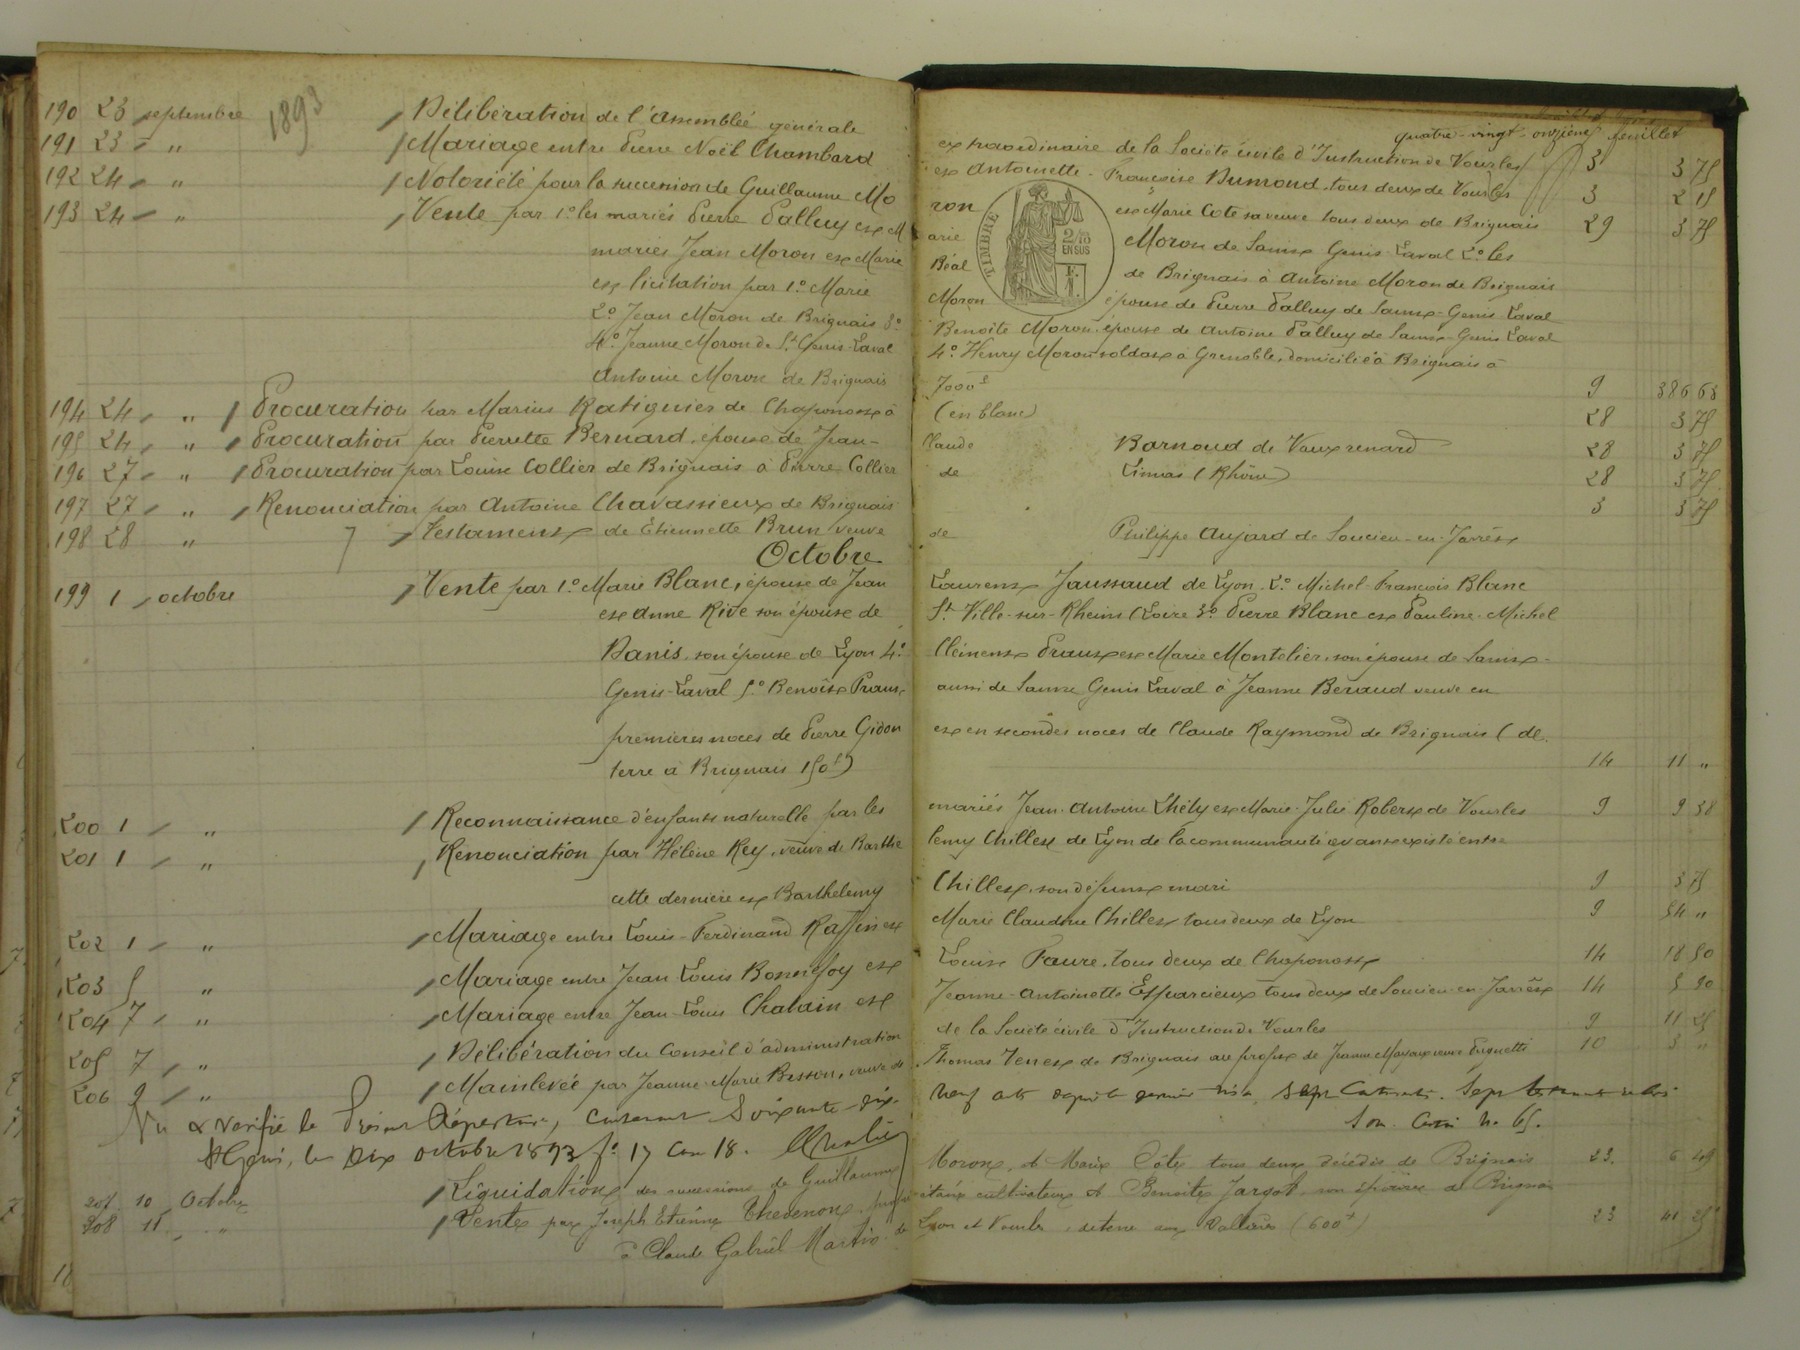 quatre-vingt-onzième feuillet
1893
190 23 septembre Délibération de l'Assemblée générale extraordinaire de la Société civile d'Instruction de Vourles 3 3 75
191 23 " Mariage entre Pierre Noël Chambard et Antoinette-Françoise Dumond, tous deux de Vourles 3 2 15
192 24 " Notoriété pour la succession de Guillaume Moron et Marie Cote sa veuve tous deux de Brignais 29 3 75
193 24 " Vente par 1º les mariés Pierre Palluy et Marie Moron de Saint Genis-Laval 2º les
mariés Jean Moron et Marie Béal de Brignais à Antoine Moron de Brignais
et licitation par 1º Marie Moron épouse de Pierre Palluy de Saint-Genis-Laval
2º Jean Moron de Brignais 3º Benoîte Moron épouse de Antoine Palluy de Saint-Genis Laval
4º Jeanne Moron de St Genis-Laval 4º Henry Moron soldat à Grenoble, domicilié à Brignais à
Antoine Moron de Brignais 7000f 9 386 63
TIMBRE
2/10 EN SUS
194 24 " Procuration par Marius Ratignier de Chaponost à (en blanc) 28 3 75
195 24 " Procuration par Pierrette Bernard, épouse de Jean-Claude Barnoud de Vauxrenard 28 3 75
196 27 " Procuration par Louise Collier de Brignais à Pierre Collier de Limas (Rhône) 28 3 75
197 27 " Renonciation par Antoine Chavassieux de Brignais 3 3 75
198 28 " Testament de Etiennette Brun veuve de Philippe Aujard de Soucieu-en-Jarrêt
Octobre
199 1 octobre Vente par 1º Marie Blanc, épouse de Jean Laurent Jaussaud de Lyon. 2º Michel-François Blanc
et Anne Rive son épouse de St Ville-sur-Rheins (Loire 3º Pierre Blanc et Pauline-Michel
Danis, son épouse de Lyon 4º Clément Praux et Marie Montelier, son épouse de Saint-
Genis-Laval 5º Benoît Praux aussi de Saint Genis Laval à Jeanne Beraud veuve en
premières noces de Pierre Gidon et en secondes noces de Claude Raymond de Brignais (de
terre à Brignais 150f) 14 11 "
200 1 " Reconnaissance d'enfant naturelle par les mariés Jean-Antoine Thély et Marie-Julie Robert de Vourles 9 9 38
201 1 " Renonciation par Hélène Rey, veuve de Barthelemy Chillet de Lyon de la communauté ayant existé entre
cette dernière et Barthelemy Chillet, son défunt mari 9 3 75
202 1 " Mariage entre Louis-Ferdinand Raffin et Marie Claudine Chillet tous deux de Lyon 9 54 "
203 5 " Mariage entre Jean Louis Bonnefoy et Louise Faure, tous deux de Chaponost 14 18 50
204 7 " Mariage entre Jean-Louis Chatain et Jeanne-Antoinette Esparcieux tous deux de Soucieu-en-Jarrêt 14 5 90
205 7 " Délibération du Conseil d'administration de la Société civile d'Instruction de Vourles 9 11 25
206 9 " Mainlevée par Jeanne-Marie Besson, veuve de Thomas Tenet de Brignais au profit de Jeanne veuve 10 3 "
Vu & vérifié le Présent Répertoire, contenant Soixante-dix-neuf acts depuis le dernier visa
St Genis, le Dix octobre 1893 fº 17 Case 18.
207 10 Octobre Liquidation des successions de Guillaume Moron et Marie Côte tous deux décédés de Brignais 23 6 49
208 11 " Vente par Joseph Etienne Thevenon cultivateur et Benoite Jargot, son épouse de Brignais
à Claude Gabriel Martin de Lyon et Vourles (600f) 23 41 25